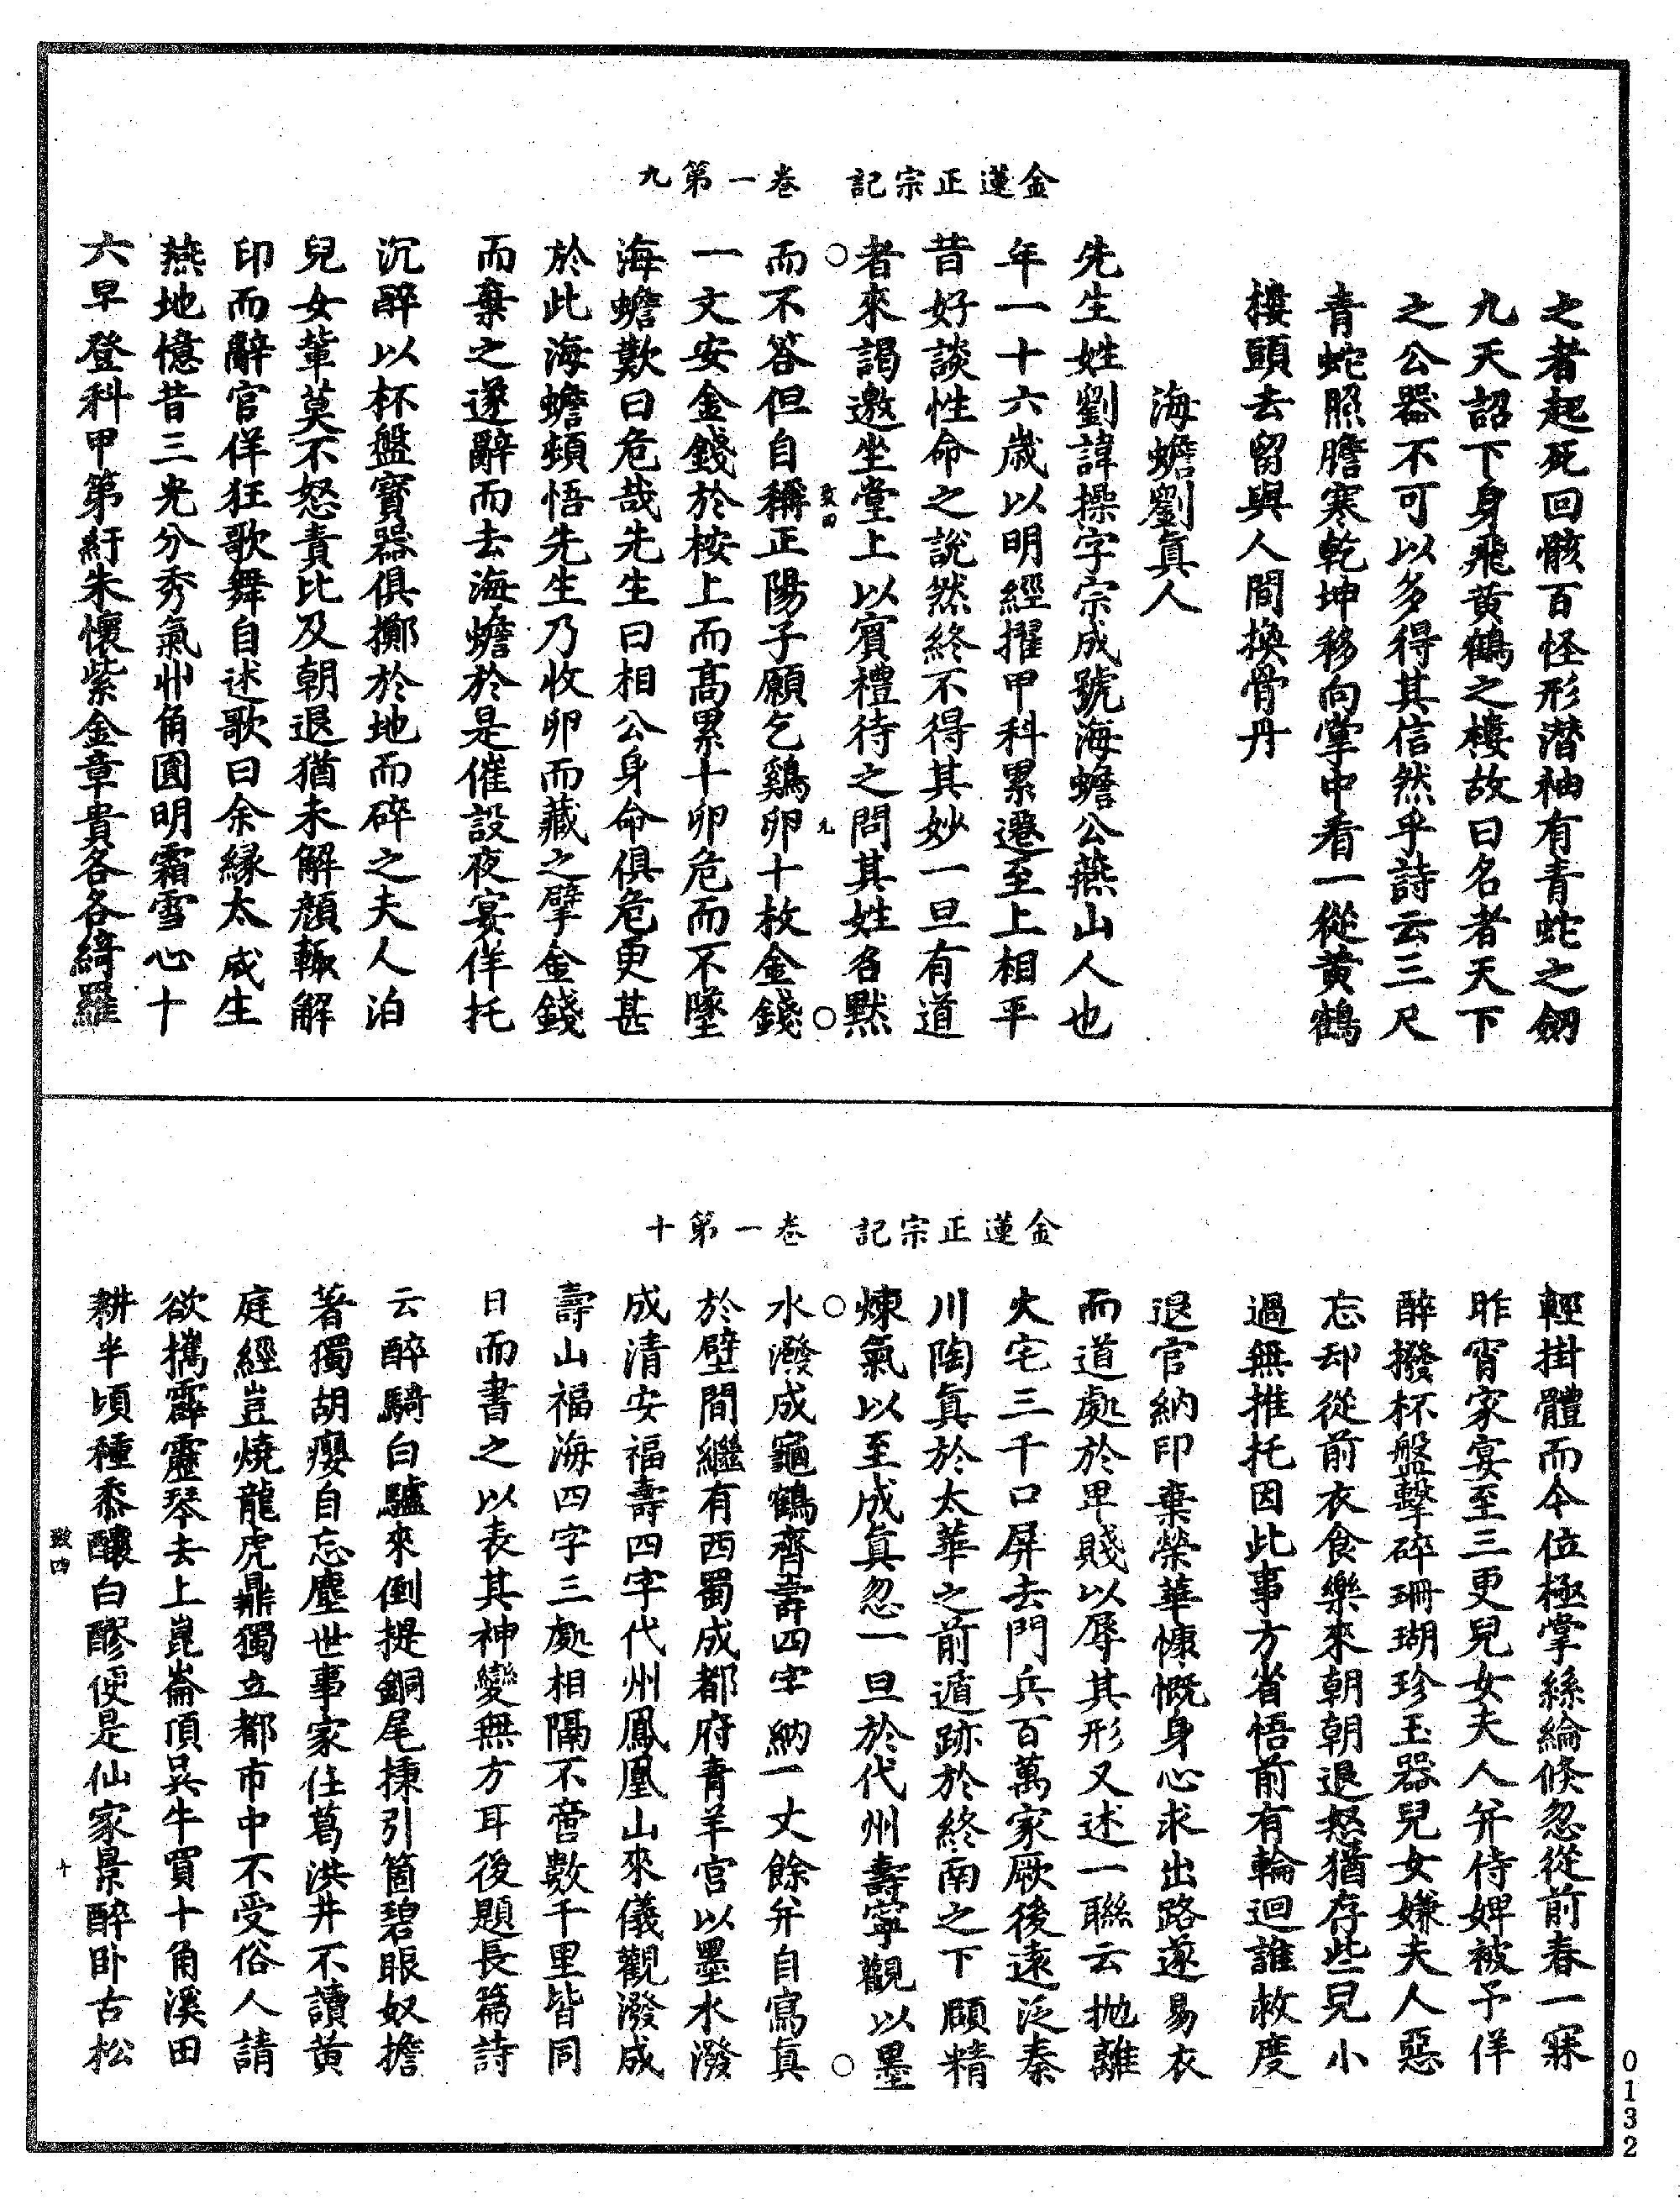 金蓮正宗記　卷一第九
之者起死回骸百怪形潜袖有青蛇之劒
九天詔下身飛黄鶴之樓故曰名者天下
之公器不可以多得其信然乎詩云三尺
青蛇照膽寒乾坤移向掌中看一從黄鶴
樓頭去留與人間換骨丹
海蟾劉真人
先生姓劉諱操字宗成號海蟾公燕山人也
年一十六歲以明經擢甲科累遷至上相平
昔好談性命之說然終不得其妙一旦有道
者來謁邀坐堂上以賓禮待之問其姓名默
○　致四　九　○
而不答但自稱正陽子願乞鷄卵十枚金錢
一文安金錢於桉上而髙累十卵危而不墜
海蟾歎曰危哉先生曰相公身命俱危更甚
於此海蟾頓悟先生乃收卵而藏之擘金錢
而棄之遂辭而去海蟾於是催設夜宴佯托
沉醉以杯盤寳器俱擲於地而碎之夫人洎
兒女輩莫不怒責比及朝退猶未解顔輙解
印而辭官佯狂歌舞自述歌曰余緣太歲生
燕地憶昔三光分秀氣丱角圎明霜雪心十
六早登科甲第紆朱懷紫金章貴各各綺羅
金蓮正宗記　卷一第十
輕掛體而今位極掌絲綸倐忽從前春一寐
昨宵家宴至三更兒女夫人并侍婢被予佯
醉撥杯盤擊碎珊瑚珍玉器兒女嫌夫人惡
忘却從前衣食樂來朝朝退怒猶存些兒小
過無推托因此事方省悟前有輪迴誰救度
退官納印棄榮華慷慨身心求出路遂易衣
而道處於卑賤以辱其形又述一聯云抛離
火宅三千口屏去門兵百萬家厥後逺泛秦
川陶真於太華之前遁跡於終南之下頤精
煉氣以至成真忽一旦於代州壽寧觀以墨
○　○
水潑成龜鶴齊壽四字納一丈餘并自寫真
於壁間繼有西蜀成都府青羊宫以墨水潑
成清安福壽四字代州鳳凰山來儀觀潑成
壽山福海四字三處相隔不啻數千里皆同
日而書之以表其神變無方耳後題長篇詩
云醉騎白驢來倒提銅尾揀引箇碧眼奴擔
著獨胡癭自忘塵世事家住葛洪井不讀黄
庭經豈燒龍虎鼎獨立都市中不受俗人請
欲攜霹靂琴去上崑崙頂吴牛買十角溪田
耕半頃種黍釀白醪便是仙家景醉卧古松
致四　十
0132